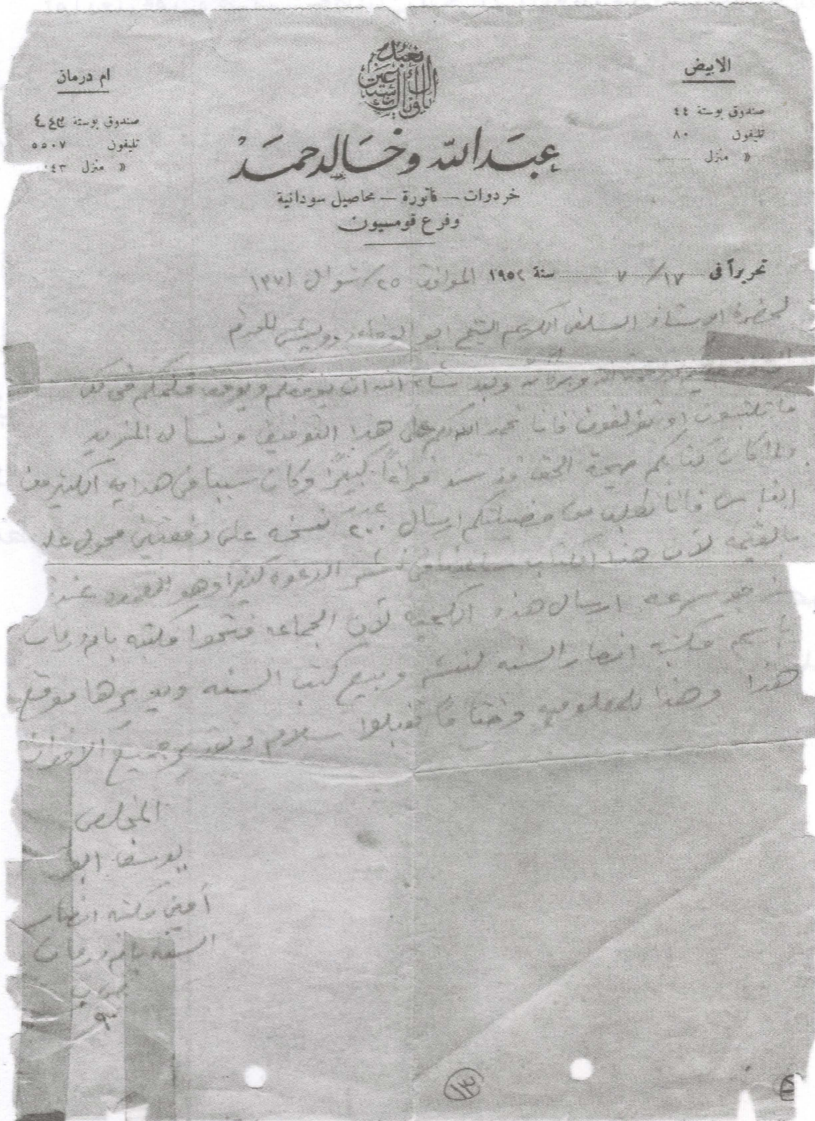 إياك نعبد وإياك نستعين
الابيض
صندوق بوستة ٤٤
تليفون ٨٠
« منزل
ام درمان
صندوق بوستة
تليفون ٥٥٠٧
« منزل
عبد الله وخالد حمد
خردوات — فاتورة — محاصيل سودانية
وفرع قومسيون
تحريراً فى ١٧/ ٧ سنة ١٩٥٢ الموافق ٢٥/ شوال ١٣٧١
لحضرة الاستاذ السلفى الكريم الشيخ ابو الوفاء درويش المحترم
وبركاته وبعد شاء الله ان يوفقكم
ما تكتبون او تؤلفون فانا نحمد الله لكم على هذا التوفيق ونسأله المزيد
ولما كان كتابكم صيحة الحق قد سد فراغا كبيرا وكان سببا فى هداية الكثير من
الناس فانا نطلب من فضيلتكم ارسال عدد ٢٠٠ نسخه على دفعتين محول عليـ
بالقيمه لأن هذا الكتاب ساعدنا فى نشر الدعوه كثيرا وهو
نرجو سرعه ارسال هذه الكميه لأن الجماعه فتحوا مكتبه بام درمان
باسم مكتبة انصار السنه لنشر وبيع كتب السنه ويديرها موقع
هذا وهذا للمعلوميه وختاما تقبلوا سلام جميع الاخوان
المخلص
يوسف
أمين مكتبة انصار
السنه بام درمان
١٣